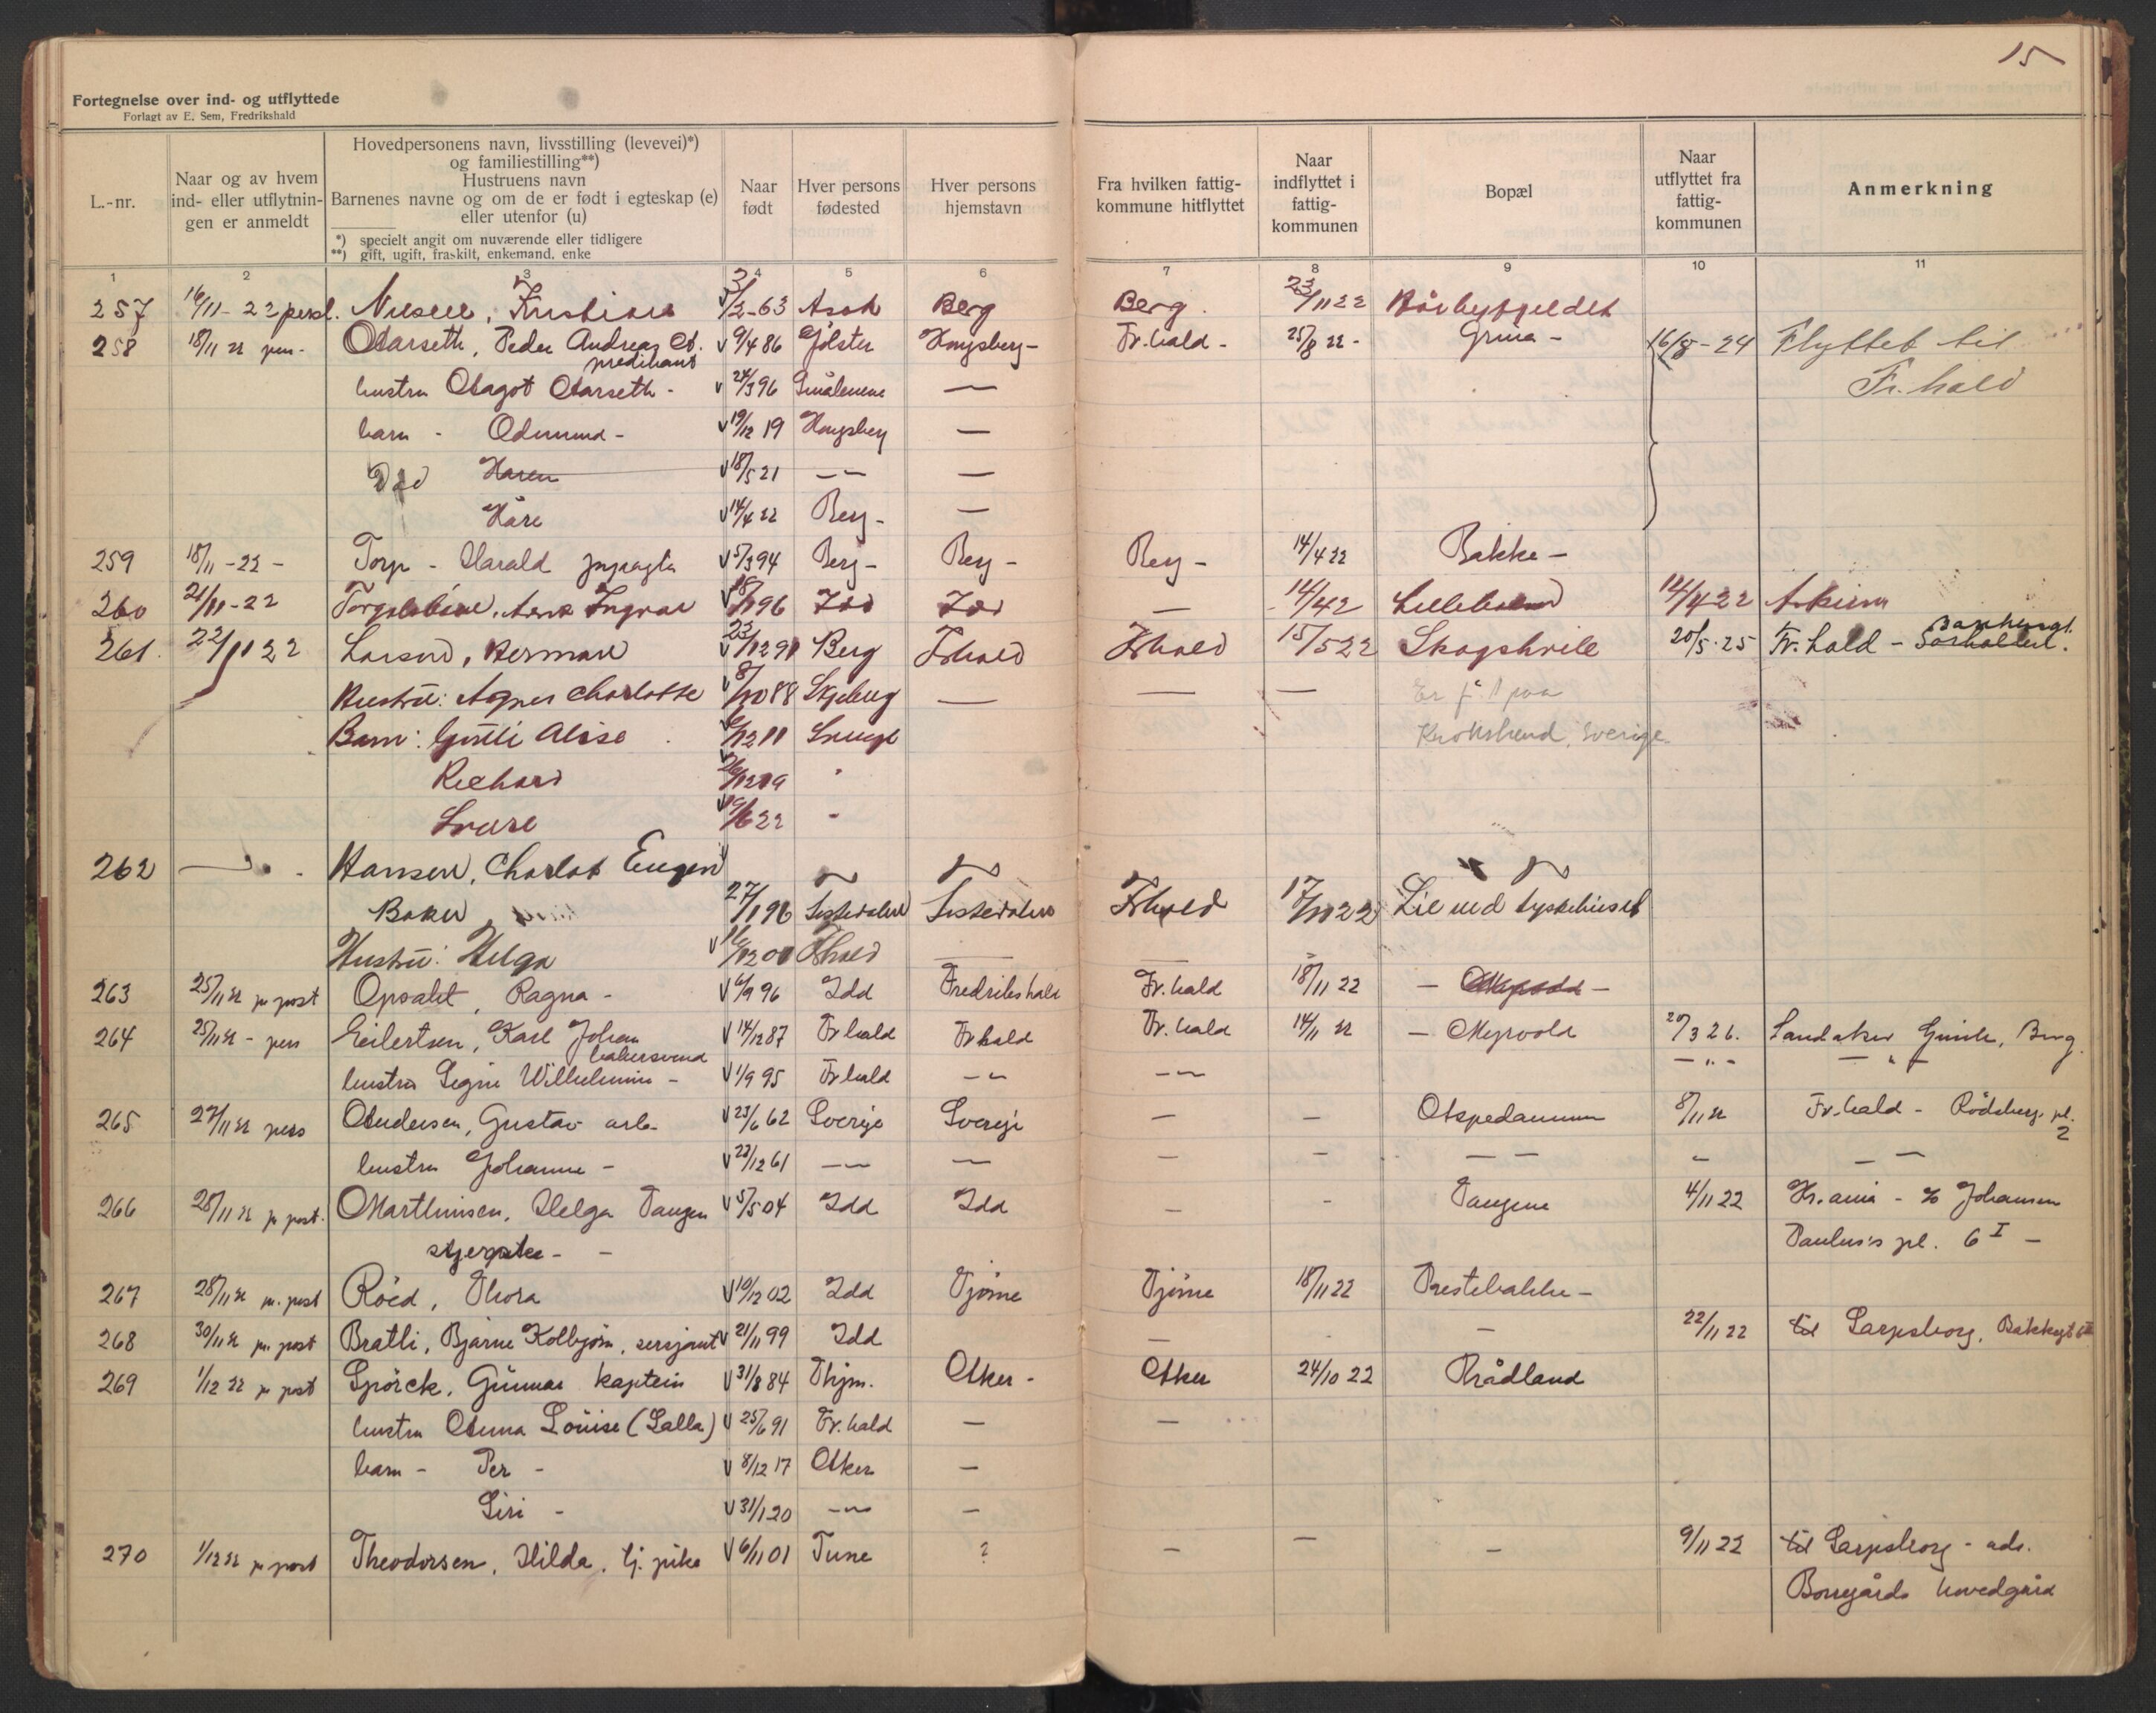 15
Fortegnelse over ind- og utflyttede
Forlagt av E. Sem, Fredrikshald
L.-nr.
Naar og av hvem ind- eller utflytningen er anmeldt
Hovedpersonens navn, livsstilling (levevei)*)
og familiestilling**)
Hustruens navn
Barnenes navne og om de er født i egteskap (e)
eller utenfor (u)
*) specielt angit om nuværende eller tidligere
**) gift, ugift, fraskilt, enkemand, enke
Naar født
Hver persons fødested
Hver persons hjemstavn
Fra hvilken fattigkommune hitflyttet
Naar indflyttet i fattigkommunen
Bopæl
Naar utflyttet fra fattigkommunen
Anmerkning
1 2 3 4 5 6 7 8 9 10 11
257 16/11-22 persl. Nilsen, Kristian 3/2-63 Asak Berg Berg 23/11 22
258 18/11 22 pers. Aarseth, Peder Andreas A. 9/4 86 Jølster Kongsberg - Fr.hald - 25/8 22 - Grina - 16/8-24 Flyttet til
predikant
hustru Aagot Aarseth - 24/3 96 Smålenene — Fr. hald
barn - Odmund - 19/12 19 Kongsberg —
Død Karen 18/5 21 —
Kåre 14/4 22 Berg - —
259 18/11-22 - Torp - Harald 5/3 94 Berg - Berg - Berg - 14/4 22 Bakke -
260 21/11-22 Ingvar 96 Idd Idd — 14/42 14/4 22 Askim
261. 22/11 22 Larsen, Herman 23/12 91 Berg Frhald Frhald 15/5 22 Skogshvile 20/5-25 Fr. hald -
Hustru: Agnes Charlotte 8/10 88 Skjeberg — — —
Er f. t. paa
Barn: Alise 12 11
Krokstrand, Sverige
Richard "
"
262 Hansen, Charlot Eugen
Baker 27/1 96 Tistedalen Tistedalen Frhald 17/10 22 Lie ved tyskehuset
Hustru: Helga Frhald — —
263 25/11 22 pr post Opsahl, Ragna - 6/9 96 Idd Fredrikshald Fr. hald 18/11 22
264 25/11 22 - pers Eilertsen, Karl Johan 14/12 87 Fr hald Fr hald Fr. hald 14/11 22 - Myrvold 20/3 26. Landaker Gimle, Berg.
bakersvend
hustru Signe Wilhelmine - 1/9 95 Fr hald - " - " — " —
265 27/11 22 pers Andersen, Gustav arb. 23/6 62 Sverige Sverige — — Aspedammen 8/11 22 Fr. hald - Rødsberg pl. 2
hustru Johanne - 23/12 61 — — — — — — — —
266 28/11 22 pr post. Marthinsen, Helga Tangen 5/5 04 Idd Idd — - Tangene 4/11 22 Kr.ania - % Johansen
Paulus's pl. 6 I —
267 28/11 22 pr. post Röed, Thora 10/12 02 Idd Tjöme Tjöme 18/11 22 Prestebakke -
268 30/11 22 pr. post Bratli, Bjarne Kolbjörn, sersjant 21/11 99 Idd — — 22/11 22 til Sarpsborg, Bakkegt
269 1/12 22 pr post Spörck, Gunnar kaptein 31/8 84 Thjm. Aker - Aker 24/10 22 Brådland
hustru Anna Louise (Lalla) 25/6 91 Fr. hald — —
barn - Per - 8/12 17 Aker —
Siri - 31/1 20 — —
270 1/12 22 pr post Theodorsen, Hilda, tj. pike 6/11 01 Tune ? — — — 9/11 22 til Sarpsborg - adr.
Borregårds hovedgård